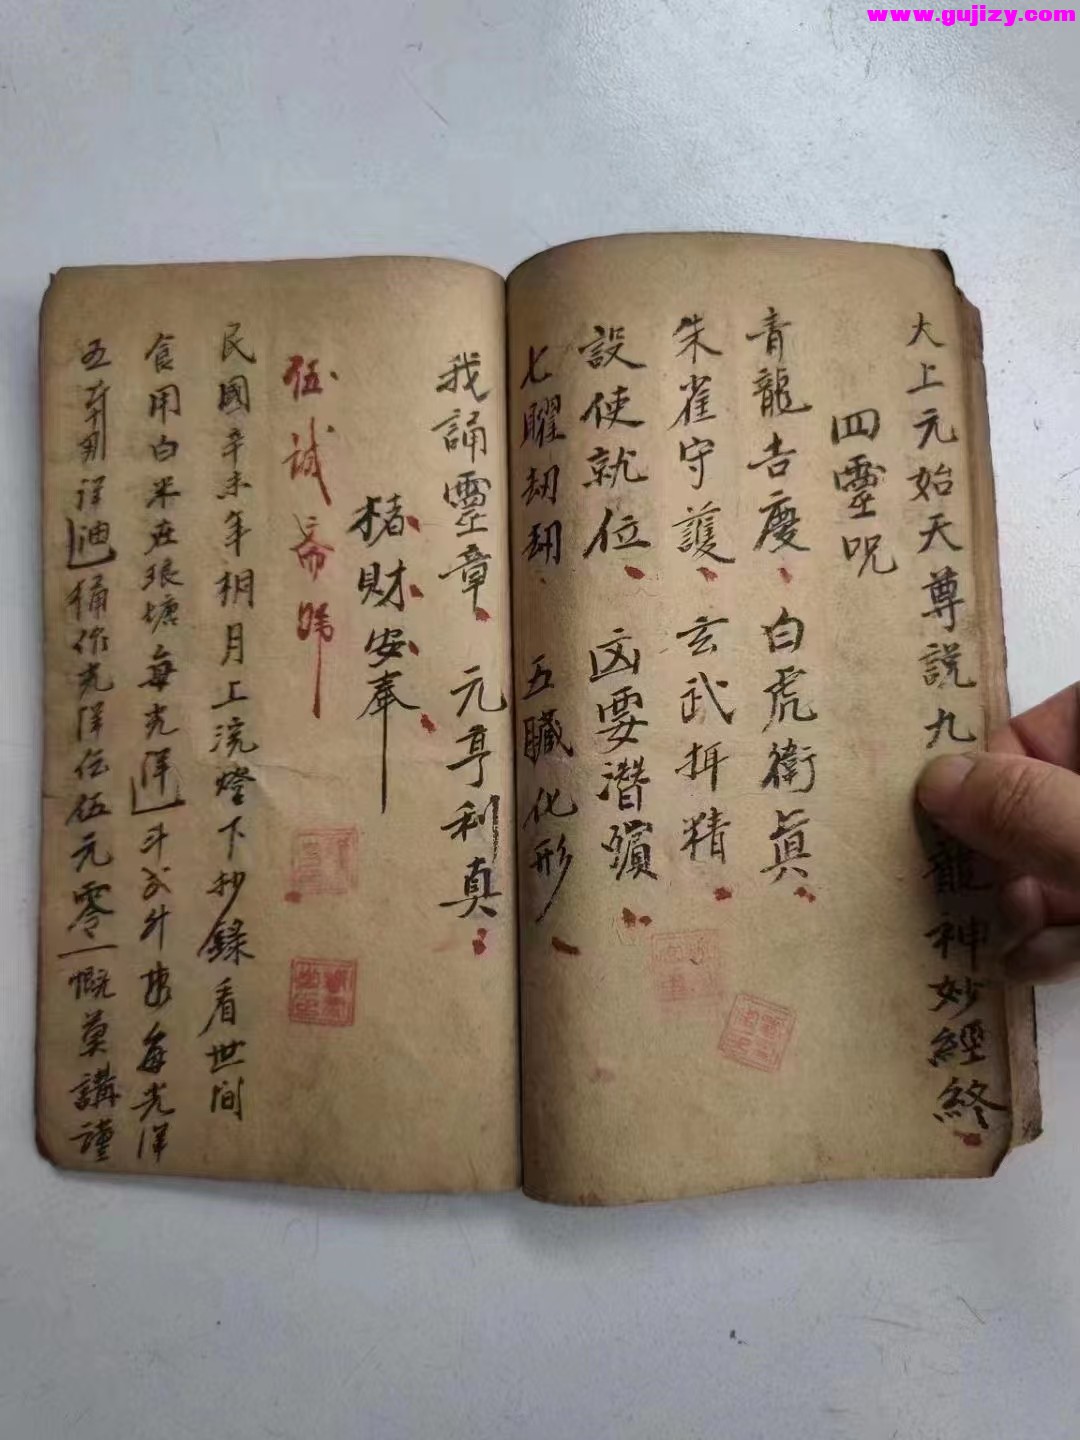 www.gujizy.com
大上元始天尊説九龍神妙經終
四靈呪
青龍吉慶 白虎衛眞
朱雀守護 玄武拜精
設使就位 凶要潛殯
七曜刧刧 五臟化形
我誦靈章 元亨利真
楮財安奉
伍誠斋號
民國辛未年桐月上浣燈下抄錄看世间
食用白米在琅塘每光洋斗弍升接每光洋
五 洋 桶作光洋伍元零一慨莫講謹